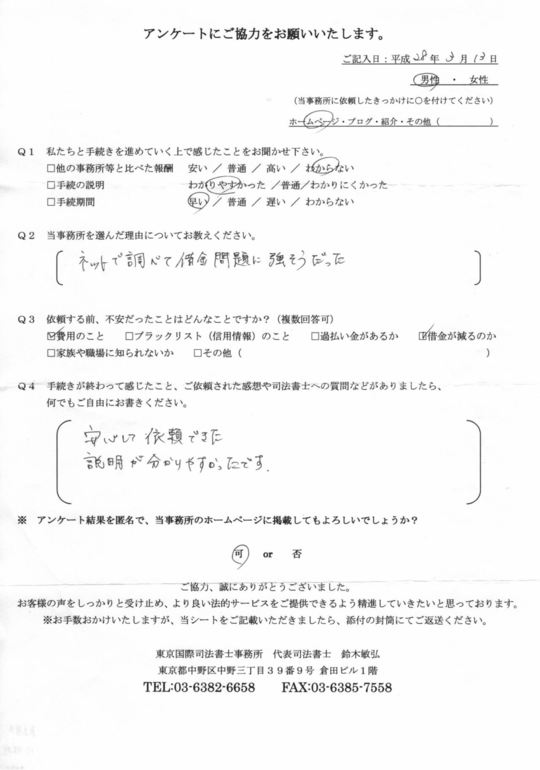 アンケートにご協力をお願いいたします。
ご記入日：平成 28 年 3 月 13 日
男性 ・ 女性
（当事務所に依頼したきっかけに○を付けてください）
ホームページ・ブログ・紹介・その他（　　　　）
Q1 私たちと手続きを進めていく上で感じたことをお聞かせ下さい。
□他の事務所等と比べた報酬 安い ／ 普通 ／ 高い ／ わからない
□手続の説明 わかりやすかった ／普通／わかりにくかった
□手続期間 早い ／ 普通 ／ 遅い ／ わからない
Q2 当事務所を選んだ理由についてお教えください。
ネットで調べて借金問題に強そうだった
Q3 依頼する前、不安だったことはどんなことですか？（複数回答可）
☑費用のこと □ブラックリスト（信用情報）のこと □過払い金があるか ☑借金が減るのか
□家族や職場に知られないか □その他（　　　　）
Q4 手続きが終わって感じたこと、ご依頼された感想や司法書士への質問などがありましたら、
何でもご自由にお書きください。
安心して依頼できた
説明が分かりやすかったです.
※ アンケート結果を匿名で、当事務所のホームページに掲載してもよろしいでしょうか？
可 or 否
ご協力、誠にありがとうございました。
お客様の声をしっかりと受け止め、より良い法的サービスをご提供できるよう精進していきたいと思っております。
※お手数おかけいたしますが、当シートをご記載いただきましたら、添付の封筒にてご返送ください。
東京国際司法書士事務所 代表司法書士 鈴木敏弘
東京都中野区中野三丁目３９番９号 倉田ビル１階
TEL:03-6382-6658 FAX:03-6385-7558